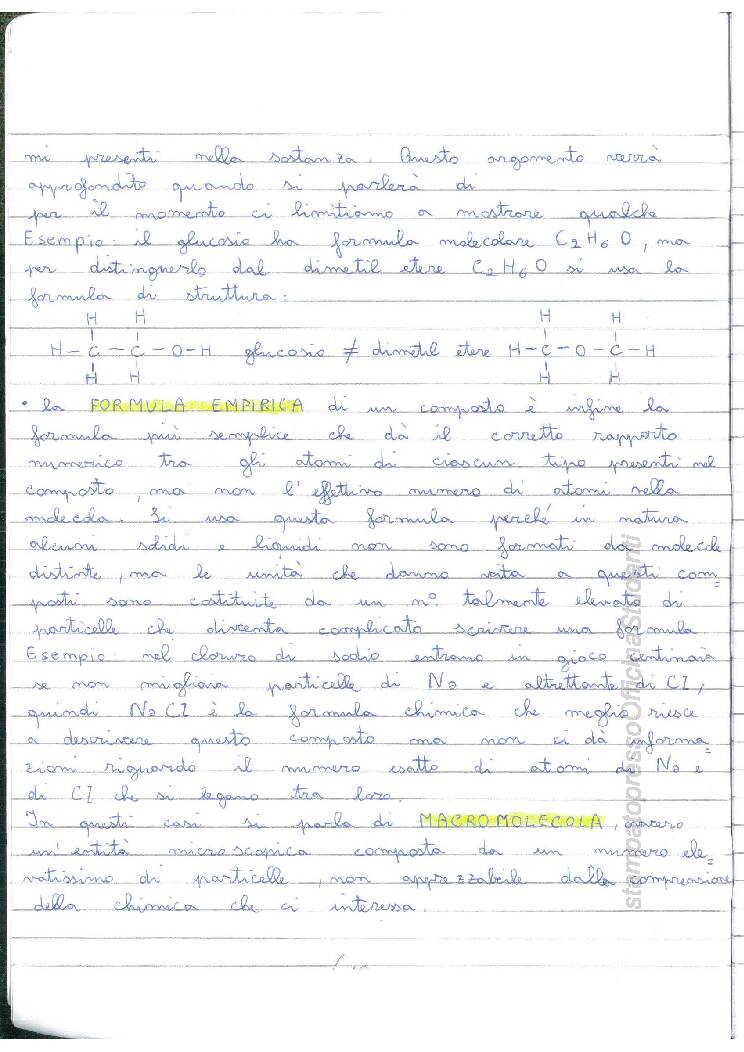 mi presenti nella sostanza. Questo argomento verrà
approfondito quando si parlerà di
per il momento ci limitiamo a mostrare qualche
Esempio: il glucosio ha formula molecolare C2H6O, ma
per distinguerlo dal dimetil etere C2H6O si usa la
formula di struttura:
H H H H
H-C-C-O-H glucosio ≠ dimetil etere H-C-O-C-H
H H H H
• la FORMULA EMPIRICA di un composto è infine la
formula più semplice che dà il corretto rapporto
numerico tra gli atomi di ciascun tipo presenti nel
composto, ma non l'effettivo numero di atomi nella
molecola. Si usa questa formula perché in natura
alcuni solidi e liquidi non sono formati da molecole
distinte, ma le unità che danno vita a questi com=
posti sono costituite da un n°. talmente elevato di
particelle che diventa complicato scrivere una formula
Esempio: nel cloruro di sodio entrano in gioco centinaia
se non migliaia particelle di Na e altrettante di Cl,
quindi NaCl è la formula chimica che meglio riesce
a descrivere questo composto ma non ci dà informa=
zioni riguardo il numero esatto di atomi di Na e
di Cl che si legano tra loro.
In questi casi si parla di MACROMOLECOLA, ovvero
un'entità microscopica composta da un numero ele=
vatissimo di particelle, non apprezzabile dalla comprensione
della chimica che ci interessa.
stampatopressoOfficinaStudenti